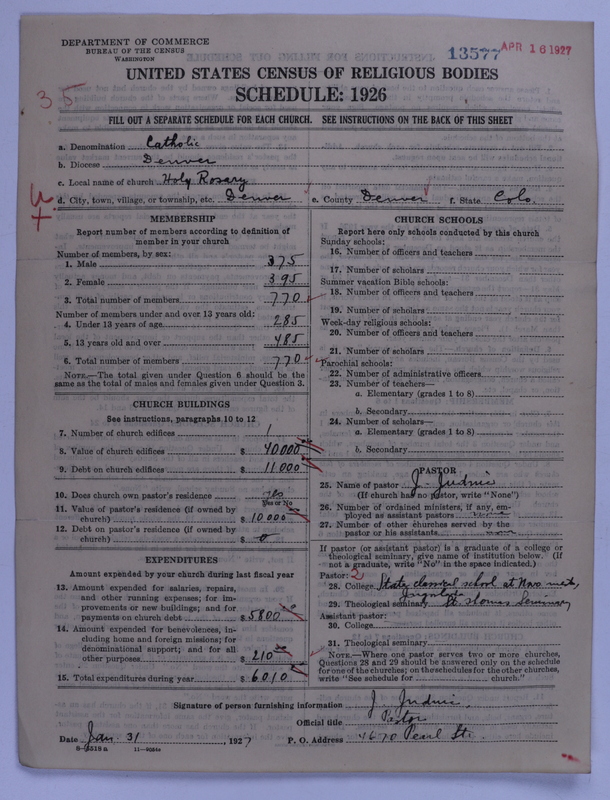 DEPARTMENT OF COMMERCE
BUREAU OF THE CENSUS
WASHINGTON
13577
APR 16 1927
UNITED STATES CENSUS OF RELIGIOUS BODIES
SCHEDULE: 1926
35
FILL OUT A SEPARATE SCHEDULE FOR EACH CHURCH. SEE INSTRUCTIONS ON THE BACK OF THIS SHEET
a. Denomination Catholic
b. Diocese Denver
c. Local name of church Holy Rosary
d. City, town, village, or township, etc. Denver e. County Denver f. State Colo.
MEMBERSHIP
Report number of members according to definition of
member in your church
Number of members, by sex:
1. Male 375
2. Female 395
3. Total number of members 770
Number of members under and over 13 years old:
4. Under 13 years of age 285
5. 13 years old and over 485
6. Total number of members 770
NOTE.—The total given under Question 6 should be the
same as the total of males and females given under Question 3.
CHURCH BUILDINGS
See instructions, paragraphs 10 to 12
7. Number of church edifices 1
8. Value of church edifices $ 40000
9. Debt on church edifices $ 11000
10. Does church own pastor's residence yes
Yes or No
11. Value of pastor's residence (if owned by
church) $ 10000
12. Debt on pastor's residence (if owned by
church) $ 0
EXPENDITURES
Amount expended by your church during last fiscal year
13. Amount expended for salaries, repairs,
and other running expenses; for im-
provements or new buildings; and for
payments on church debt $ 5800
14. Amount expended for benevolences, in-
cluding home and foreign missions; for
denominational support; and for all
other purposes $ 210
15. Total expenditures during year $ 6010
CHURCH SCHOOLS
Report here only schools conducted by this church
Sunday schools:
16. Number of officers and teachers
17. Number of scholars
Summer vacation Bible schools:
18. Number of officers and teachers
19. Number of scholars
Week-day religious schools:
20. Number of officers and teachers
21. Number of scholars
Parochial schools:
22. Number of administrative officers
23. Number of teachers—
a. Elementary (grades 1 to 8)
b. Secondary
24. Number of scholars—
a. Elementary (grades 1 to 8)
b. Secondary
PASTOR
25. Name of pastor J. Judnic
(If church has no pastor, write "None")
26. Number of ordained ministers, if any, em-
ployed as assistant pastors
27. Number of other churches served by the
pastor or his assistants
If pastor (or assistant pastor) is a graduate of a college or
theological seminary, give name of institution below. (If
not a graduate, write "No" in the space indicated.)
Pastor: 2
28. College State classical school at Novo mesto,
Jugoslavia
29. Theological seminary St. Thomas Seminary
Assistant pastor:
30. College
31. Theological seminary
NOTE.—Where one pastor serves two or more churches,
Questions 28 and 29 should be answered only on the schedule
for one of the churches; on the schedules for the other churches,
write "See schedule for church."
Signature of person furnishing information J. Judnic
Official title Pastor
Date Jan. 31, 1927 P. O. Address 4670 Pearl St.
8—6518 a 11—9264s